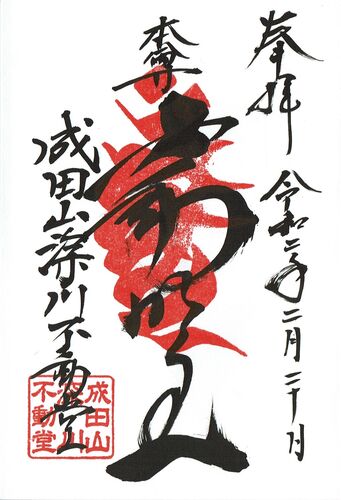 奉拝
令和二年二月二十月
本尊
不動明王
成田山深川不動堂
成田山
深川
不動堂